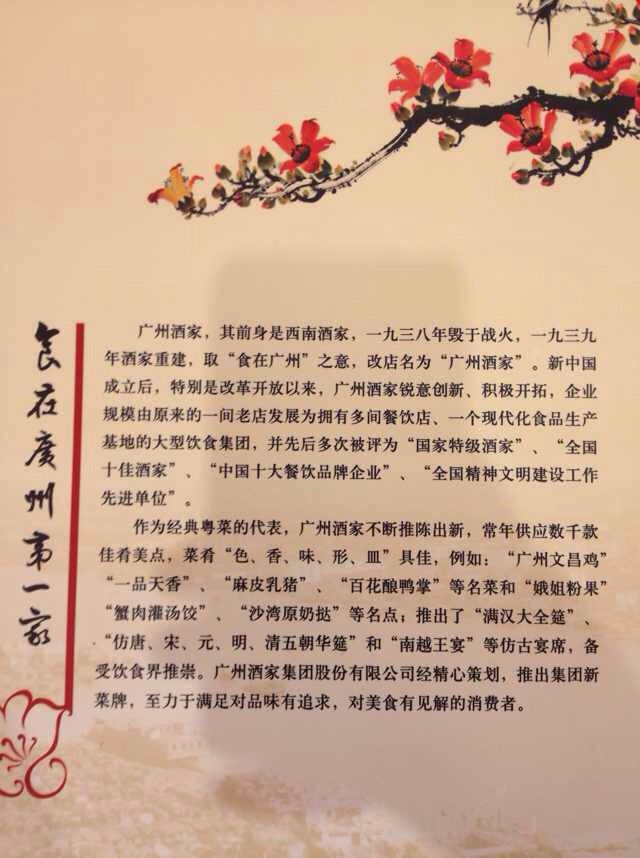 食在廣州第一家
广州酒家，其前身是西南酒家，一九三八年毁于战火，一九三九
年酒家重建，取“食在广州”之意，改店名为“广州酒家”。新中国
成立后，特别是改革开放以来，广州酒家锐意创新、积极开拓，企业
规模由原来的一间老店发展为拥有多间餐饮店、一个现代化食品生产
基地的大型饮食集团，并先后多次被评为“国家特级酒家”、“全国
十佳酒家”、“中国十大餐饮品牌企业”、“全国精神文明建设工作
先进单位”。
作为经典粤菜的代表，广州酒家不断推陈出新，常年供应数千款
佳肴美点，菜肴“色、香、味、形、皿”具佳，例如：“广州文昌鸡”
“一品天香”、“麻皮乳猪”、“百花酿鸭掌”等名菜和“娥姐粉果”
“蟹肉灌汤饺”、“沙湾原奶挞”等名点；推出了“满汉大全筵”、
“仿唐、宋、元、明、清五朝华筵”和“南越王宴”等仿古宴席，备
受饮食界推崇。广州酒家集团股份有限公司经精心策划，推出集团新
菜牌，至力于满足对品味有追求，对美食有见解的消费者。